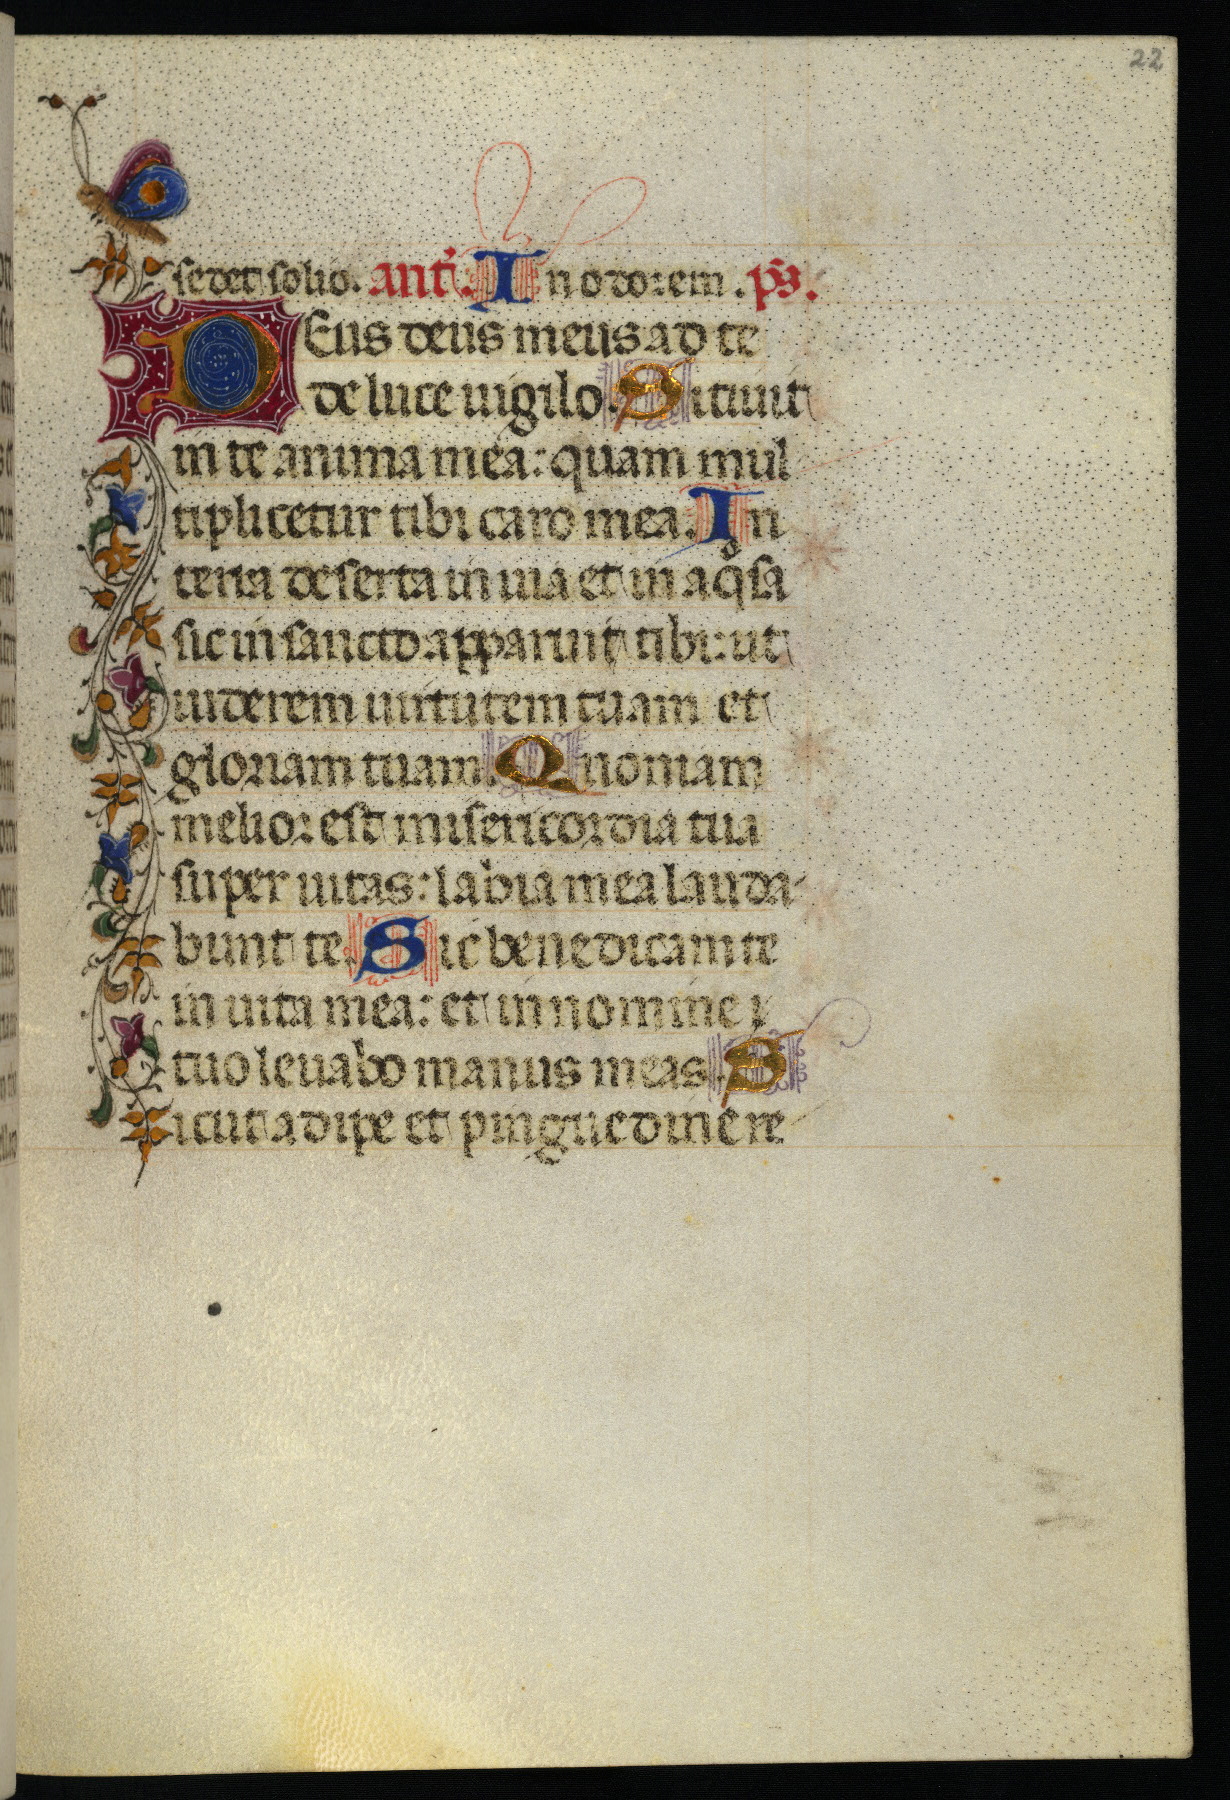 22
sedet solio. ant. In odorem. ps.
DEus deus meus ad te
de luce uigilo. Sitiuit
in te anima mea: quam mul
tiplicetur tibi caro mea. In
terra deserta in uia et in aqͦsa
sic in sancto apparuit tibi: ut
uiderem uirtutem tuam et
gloriam tuam. Quoniam
melior est misericordia tua
super uitas: labia mea lauda
bunt te. Sic benedicam te
in uita mea: et in nomine
tuo leuabo manus meas. S
icut adipe et pinguedine re